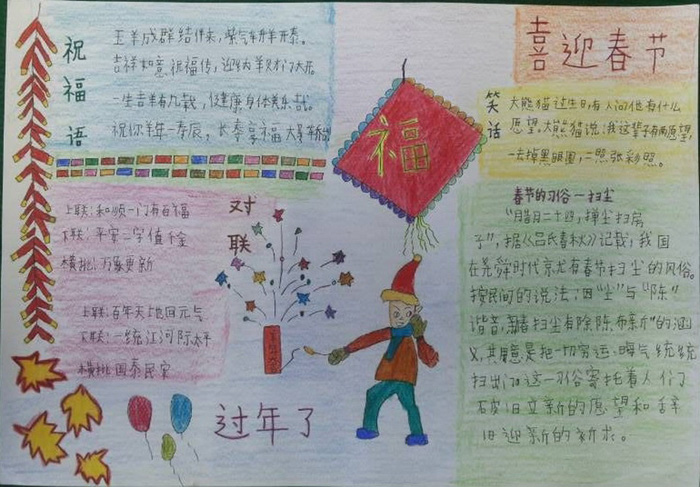 喜迎春节
祝福语
玉羊成群结伴来，紫气
吉祥如意祝福传，迎
一生吉羊有几载，健康身体真乐哉。
祝你羊年
福
笑话
大熊猫过生日，有人问他有什么
愿望。大熊猫说：我这辈子有两愿望，
一去掉黑眼圈，二照张彩照。
对联
上联：和顺一门有百福
下联：平安二字值千金
横批：万象更新
上联：百年天地回元气
下联：一统江河际太平
横批 国泰民安
春节的习俗一扫尘
"腊月二十四，掸尘扫房
子"，据《吕氏春秋》记载，我国
在尧舜时代就有春节扫尘的风俗。
按民间的说法：因"尘"与"陈"
谐音，新春扫尘有"除陈布新"的涵
义，其用意是把一切穷运、晦气统统
扫出门。这一习俗寄托着人们
破旧立新的愿望和辞
旧迎新的祈求。
过年了